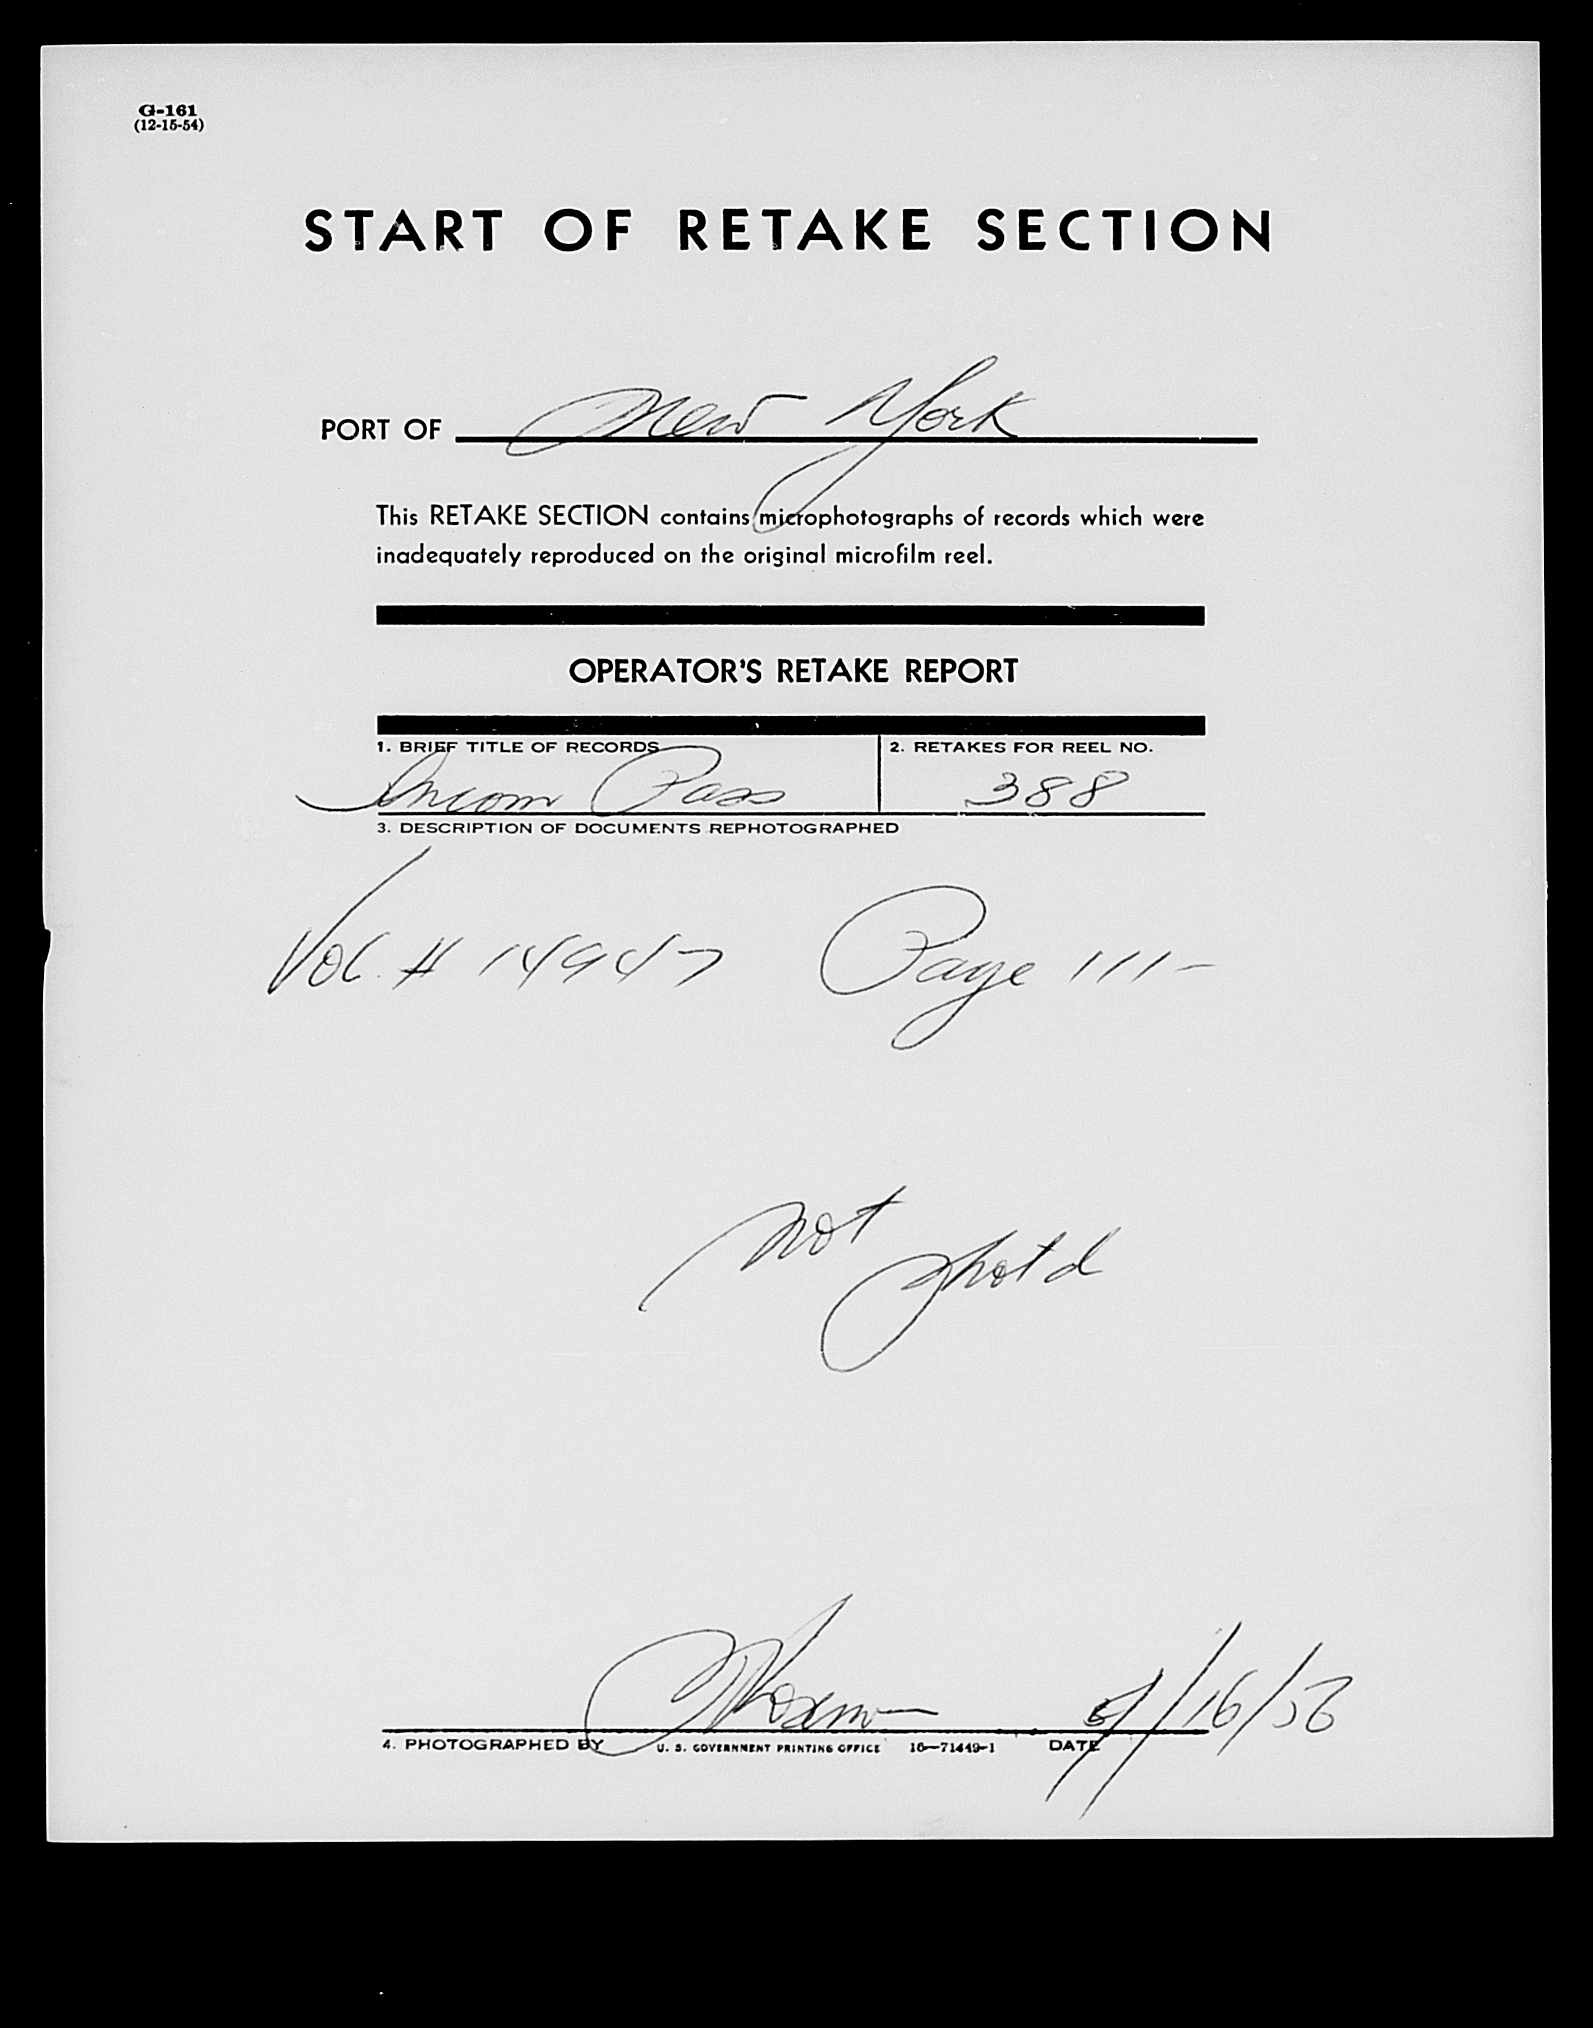 G-161
(12-15-54)
START OF RETAKE SECTION
PORT OF New York
This RETAKE SECTION contains microphotographs of records which were
inadequately reproduced on the original microfilm reel.
OPERATOR'S RETAKE REPORT
1. BRIEF TITLE OF RECORDS 2. RETAKES FOR REEL NO.
Incom Pass 388
3. DESCRIPTION OF DOCUMENTS REPHOTOGRAPHED
Vol. # 14947 Page 111-
not
4. PHOTOGRAPHED BY U. S. GOVERNMENT PRINTING OFFICE 16—71449-1 DATE